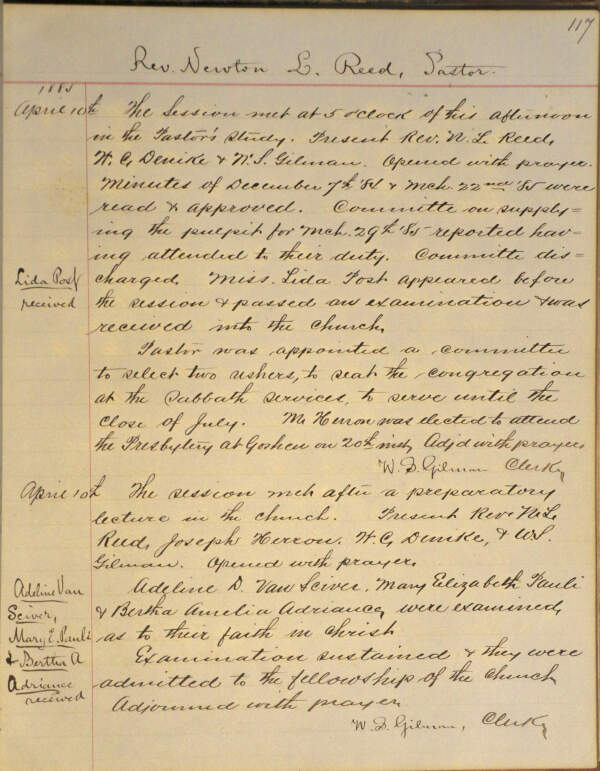 117
Rev. Newton L. Reed, Pastor.
1885
April 10th The Session met at 5 o'clock of this afternoon
in the Pastor's study. Present Rev. N. L. Reed,
H. C. Denike & W. S. Gilman. Opened with prayer.
Minutes of December 7th '84 & Mch. 22nd '85 were
read & approved. Committe on supply=
ing the pulpit for Mch. 29th '85 reported hav=
ing attended to their duty. Committe dis=
Lida Post charged. Miss. Lida Post appeared before
received the session & passed an examination & was
received into the church,
Pastor was appointed a committee
to select two ushers, to seat the congregation
at the Sabbath services, to serve until the
close of July. Mr Herron was elected to attend
the Presbytery at Goshen on 20th inst, Adjd with prayer,
W. S. Gilman Clerk,
April 10th The session met after a preparatory
lecture in the church. Present Rev. N. L.
Reed, Joseph Herron, H. C, Denike, & W S.
Gilman. Opened with prayer,
Adeline Van Adeline D. Van Sciver, Mary Elizabeth Pauli
Sciver, & Bertha Amelia Adriance, were examined,
Mary E. Pauli as to their faith in Christ
& Bertha A Examination sustained & they were
Adriance admitted to the fellowship of the church
received Adjourned with prayer,
W. S. Gilman, Clerk,